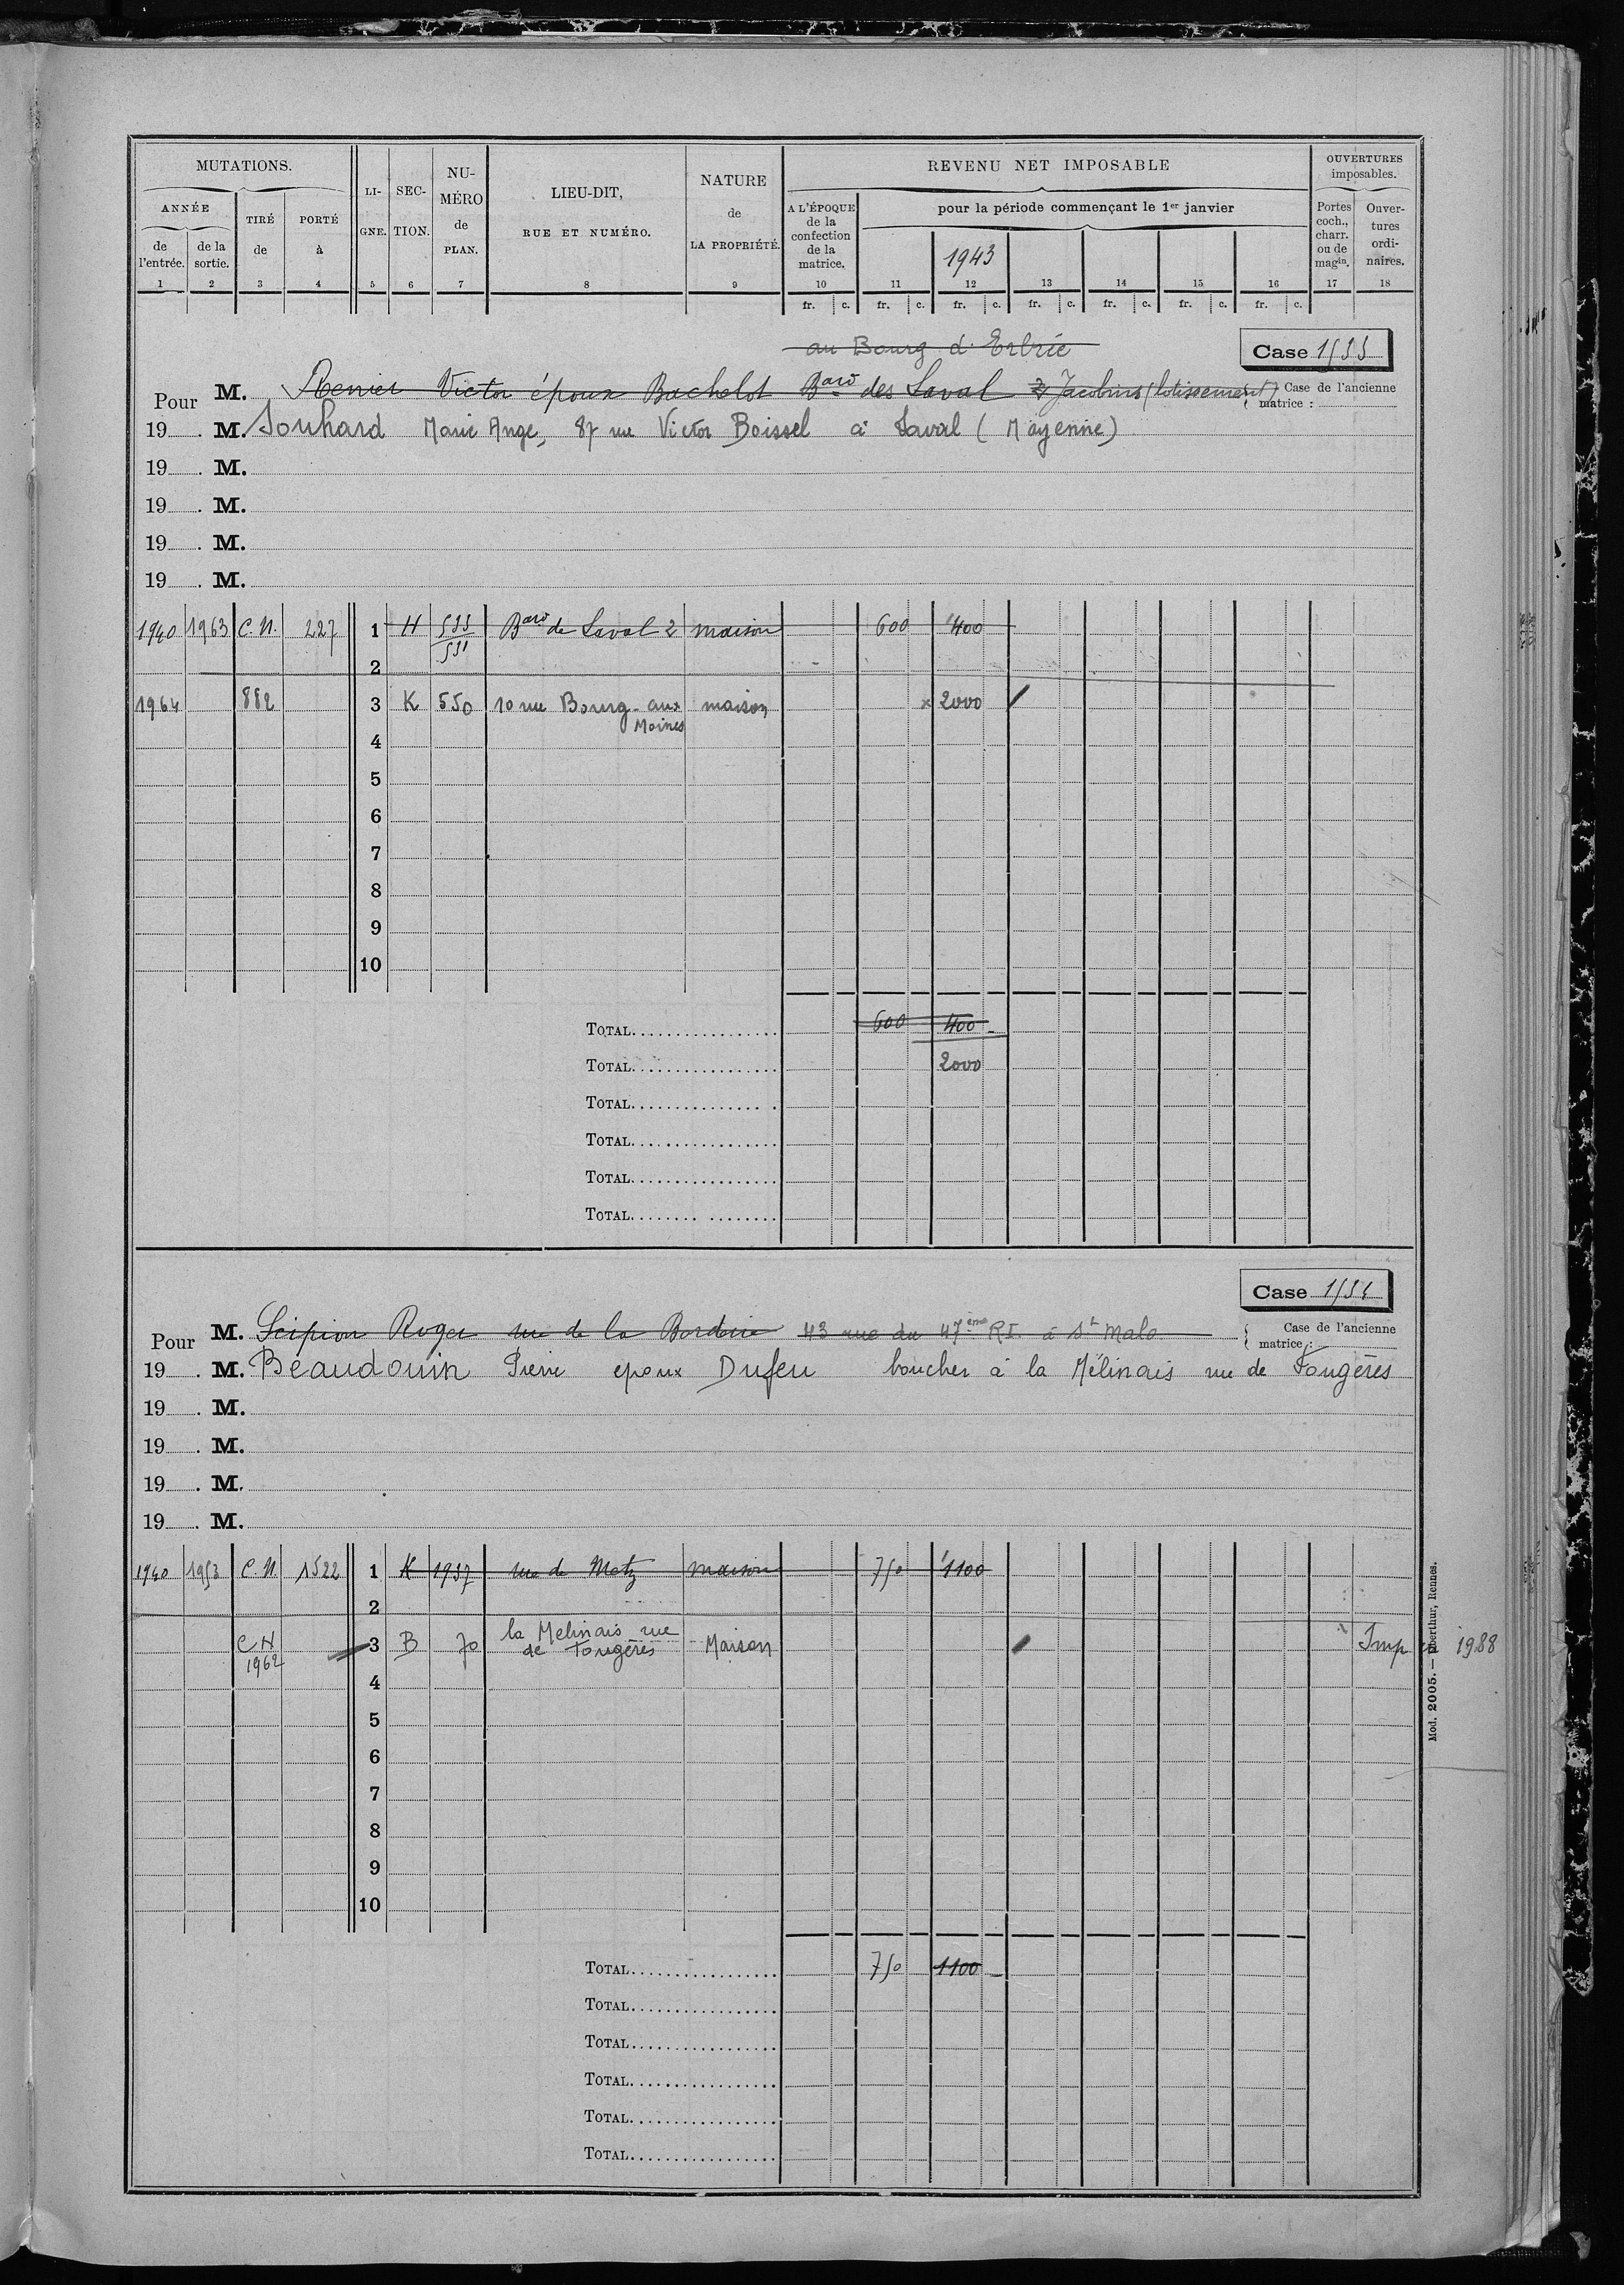 MUTATIONS.
ANNÉE
de l'entrée.
de la sortie.
TIRÉ de
PORTÉ à
LI-GNE.
SEC-TION.
NU-MÉRO de PLAN.
LIEU-DIT, RUE ET NUMÉRO.
NATURE de LA PROPRIÉTÉ.
REVENU NET IMPOSABLE
A L'ÉPOQUE de la confection de la matrice.
pour la période commençant le 1er janvier
1943
OUVERTURES imposables.
Portes coch., charr. ou de magin.
Ouver-tures ordi-naires.
1 2 3 4 5 6 7 8 9 10 11 12 13 14 15 16 17 18
fr. c. fr. c. fr. c. fr. c. fr. c. fr. c. fr. c.
au Bourg d'Erbrée
Case
Pour M. Victor époux Bachelot Bard des Laval Jacobins (lotissement)
Case de l'ancienne matrice :
19 . M. Jouhard Marie Ange, 87 rue Victor Boissel à Laval (Mayenne)
19 . M.
19 . M.
19 . M.
19 . M.
1940 1963 C.N. 227 1 H Bard de Laval 2 maison 600 400
2
1964 882 3 K 550 10 rue Bourg-aux Moines maison x 2000
4
5
6
7
8
9
10
TOTAL 600 400
TOTAL 2000
TOTAL
TOTAL
TOTAL
TOTAL
Case
Pour M. Scipion Roger rue de la Borderie 43 rue du 47ème RI à St Malo
Case de l'ancienne matrice :
19 . M. Beaudouin Pierre epoux Dufeu boucher à la Mélinais rue de Fougères
19 . M.
19 . M.
19 . M.
19 . M.
1940 1953 C.N. 1522 1 K 1937 rue de Metz maison 750 1100
2
CN 1962 3 B 70 la Melinais rue de Fougères Maison Imp 1988
4
5
6
7
8
9
10
TOTAL 750 1100
TOTAL
TOTAL
TOTAL
TOTAL
TOTAL
Mod. 2005. — Oberthur, Rennes.